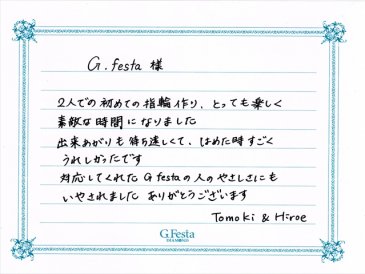 G.festa 様
2人での初めての指輪作り、とっても楽しく
素敵な時間になりました
出来あがりも待ち遠しくて、はめた時すごく
うれしかったです
対応してくれた G festaの人のやさしさにも
いやされました ありがとうございます
Tomoki & Hiroe
G.Festa
DIAMONDS